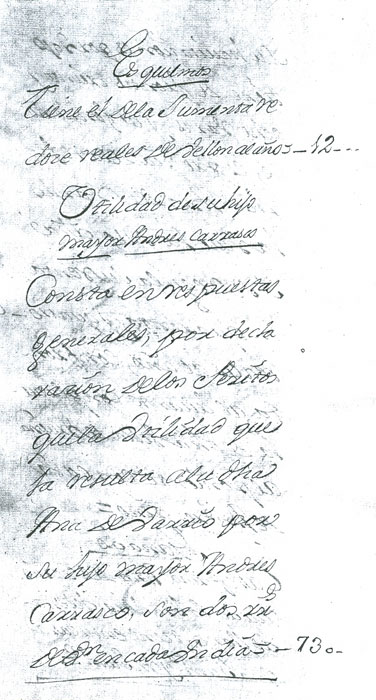 Esquilmos
Tiene el de la Jumenta de
doze reales de vellon al año = 12 ...
Vtilidad de su hijo
mayor Andres Carrasco
Consta en respuestas,
generales, por decla
racion de los Peritos
que la Vtilidad que
la resulta a la dha
Ana de por
su hijo mayor Andres
Carrasco, son dos rrs
de Vn. en cada Vn dia = - 730 -